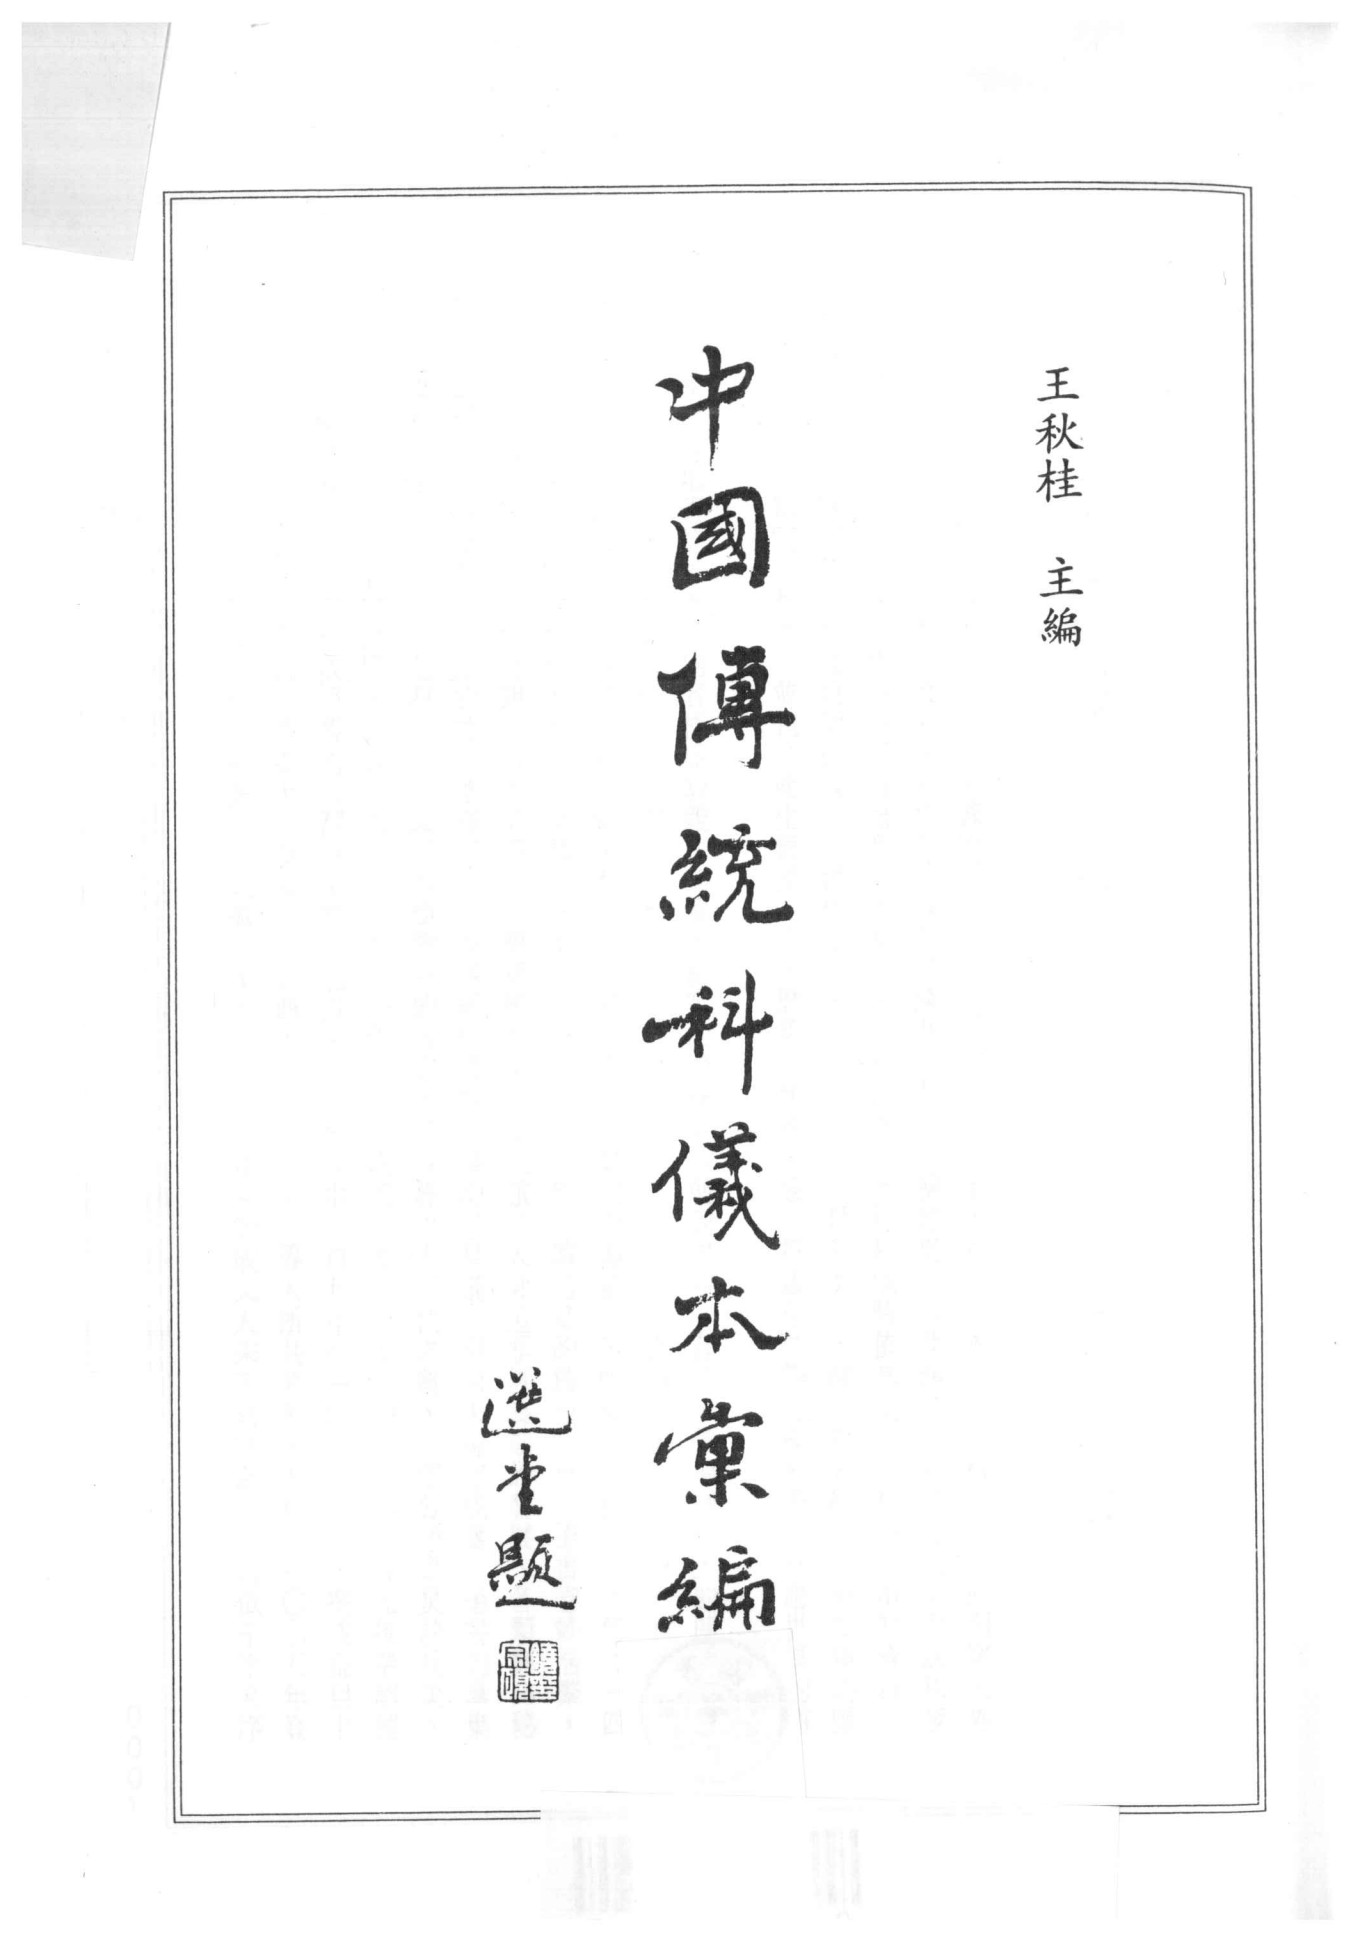 王秋桂 主編
中國傳統科儀本彙編
選堂題
饒宗頤